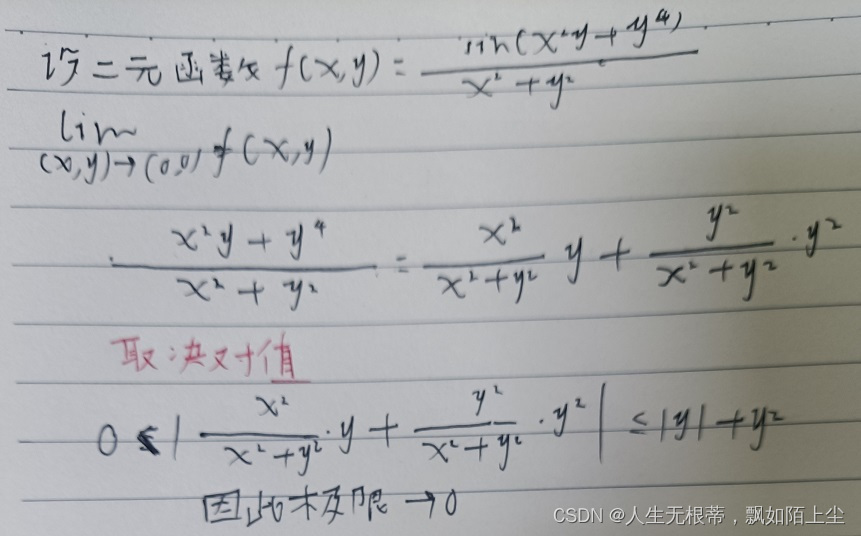 设二元函数 f(x,y) = sin(x²y + y⁴) / (x² + y²)
lim (x,y)→(0,0) f(x,y)
(x²y + y⁴) / (x² + y²) = x² / (x² + y²) y + y² / (x² + y²) · y²
取决对值
0 ≤ | x² / (x² + y²) · y + y² / (x² + y²) · y² | ≤ |y| + y²
因此极限 → 0
CSDN @人生无根蒂，飘如陌上尘